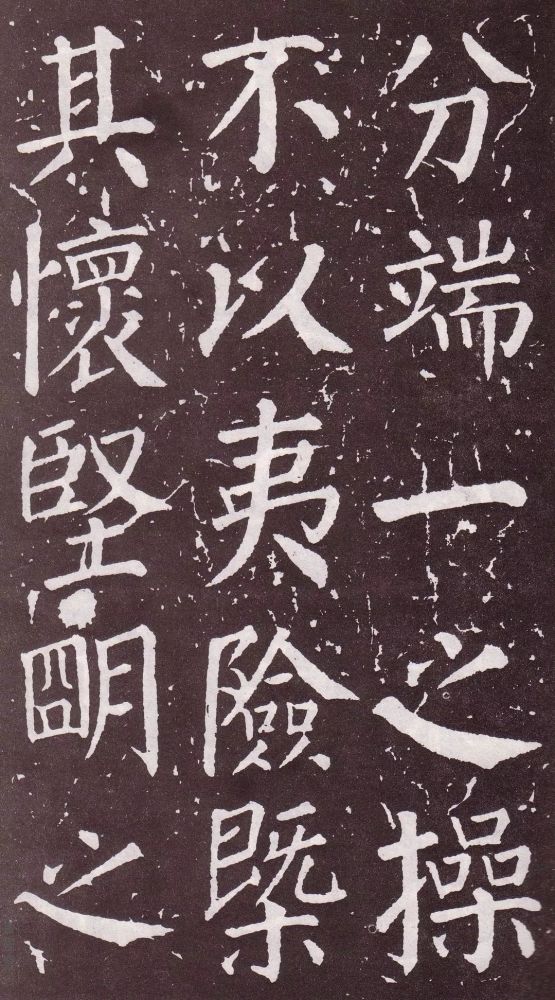 分端一之操
不以夷險槩
其懷堅明之